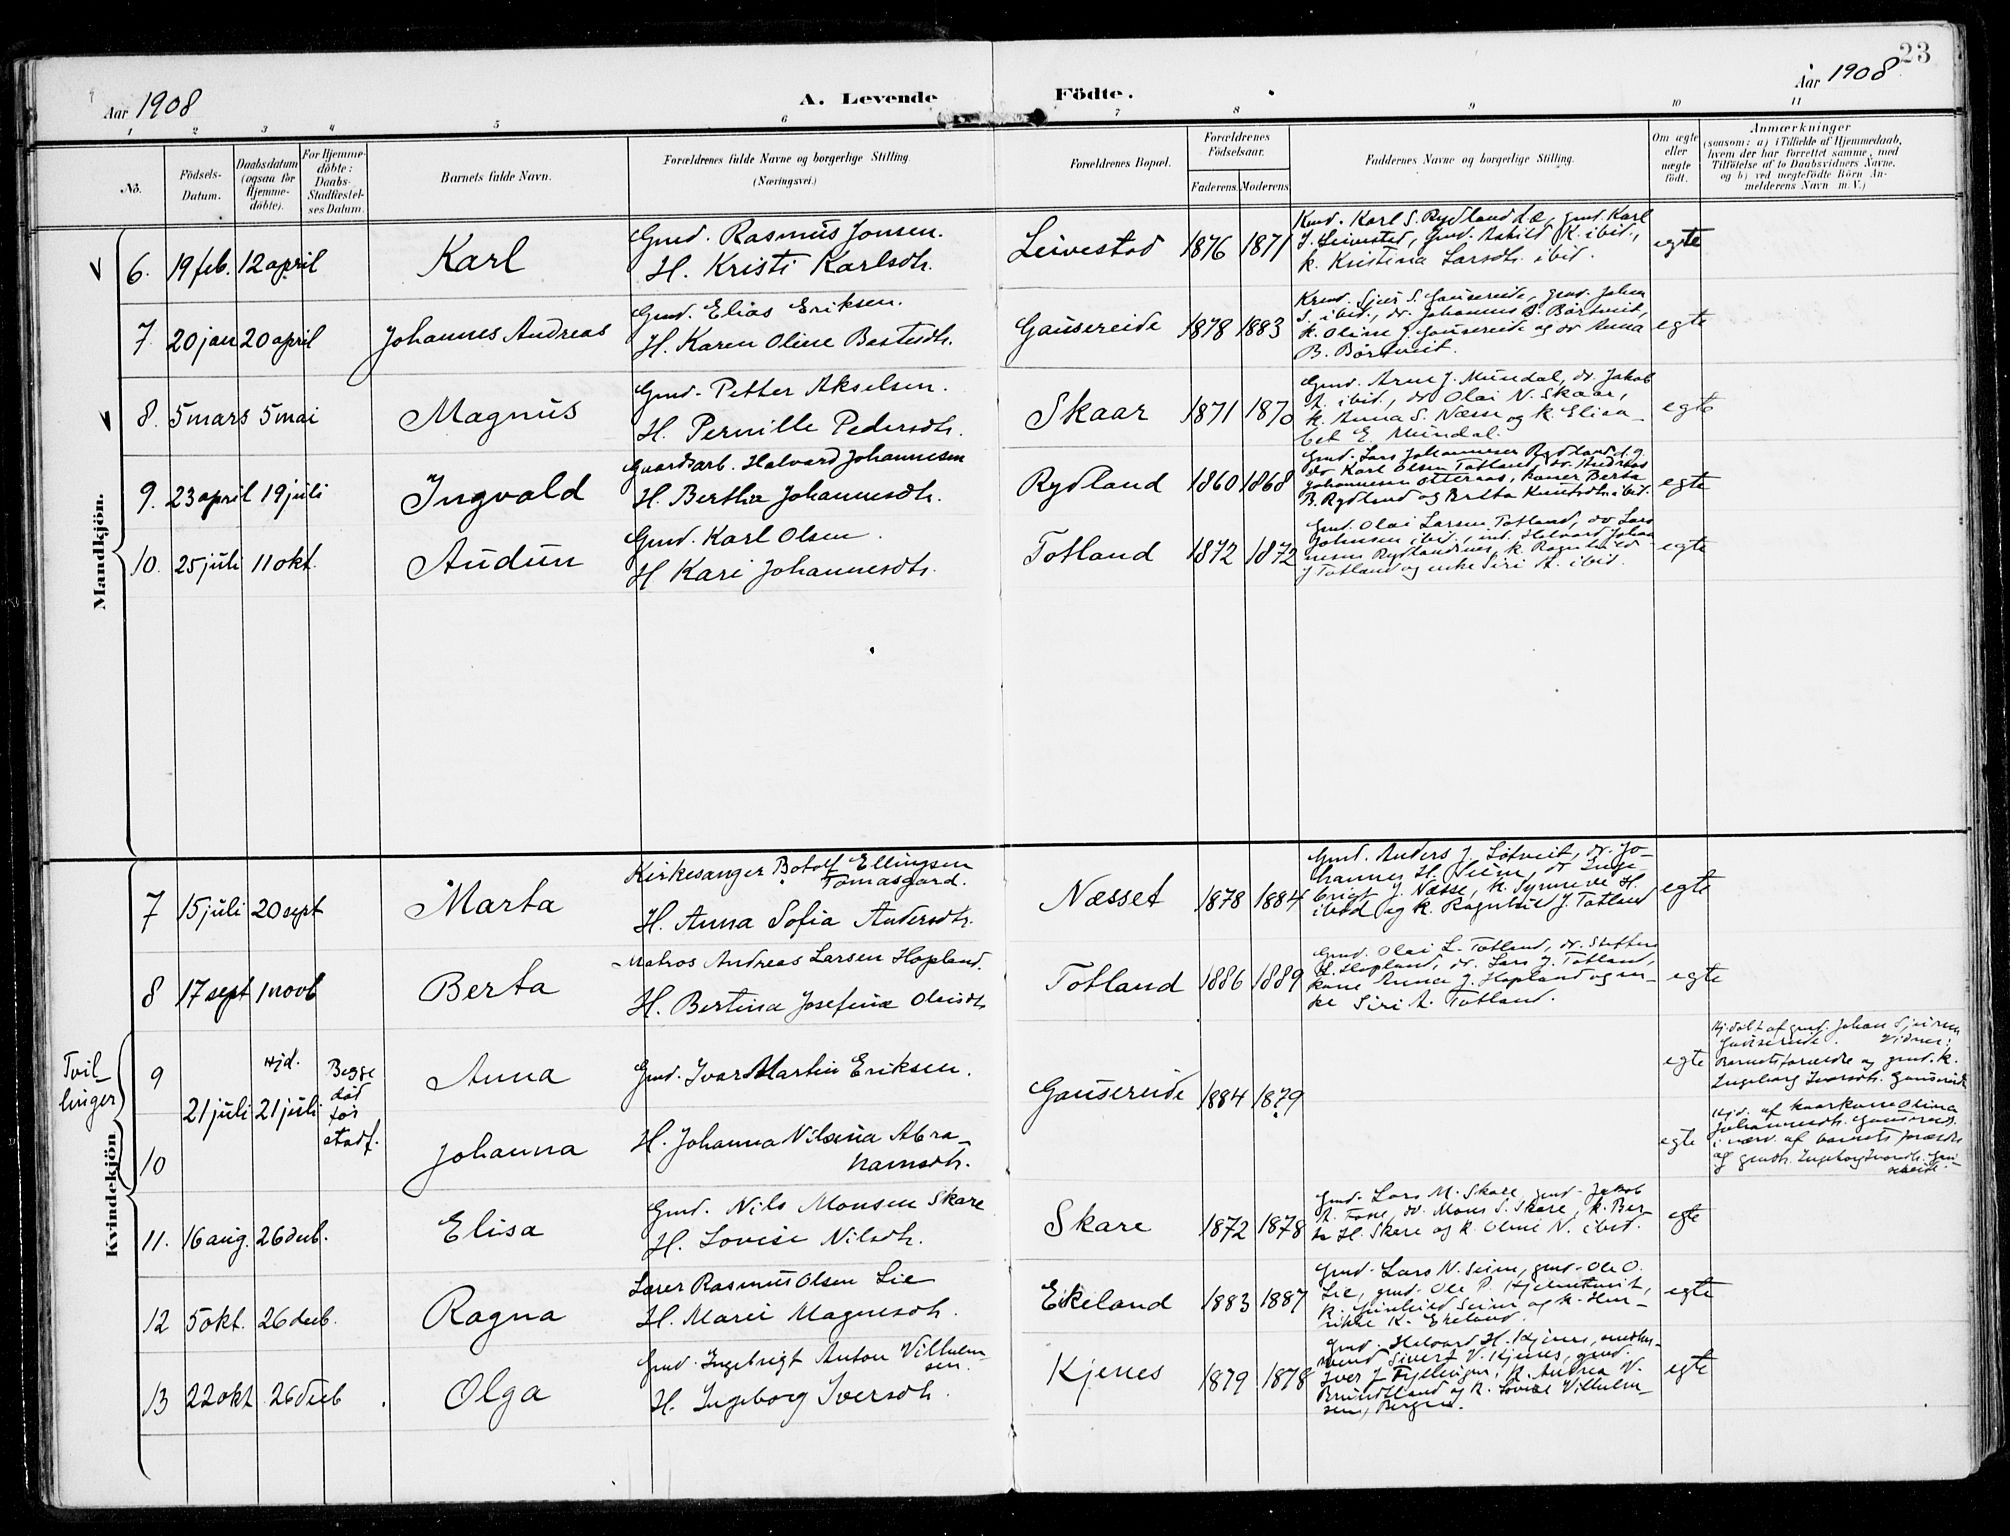 23
Aar 1908
A. Levende Födte.
Aar 1908
1 2 3 4 5 6 7 8 9 10 11
No.
Födsels-Datum.
Daabsdatum (ogsaa for Hjemme-döbte).
For Hjemme-döbte: Daabs-Stadfæstel-ses Datum.
Barnets fulde Navn.
Forældrenes fulde Navne og borgerlige Stilling.
(Næringsvei.)
Forældrenes Bopæl.
Forældrenes Födselsaar.
Faderens. Moderens.
Faddernes Navne og borgerlige Stilling.
Om ægte eller uægte födt.
Anmærkninger
(saasom: a) i Tilfælde af Hjemmedaab, hvem der har forrettet samme, med Tilföielse af to Daabsvidners Navne, og b) ved uægtefödte Börn An-melderens Navn m. V.)
Mandkjön.
6. 19 feb. 12 april Karl
Gmd. Rasmus Jonsen.
H. Kristi Karlsdtr.
Leivestad 1876 1871
Gmd. Karl S. Rydland d.e., gmd. Karl
J. Leivestad, Gmd. K. ibid.,
k. Kristina Larsdtr. ibid.
egte
7. 20 jan 20 april Johannes Andreas
Gmd. Elias Eriksen.
H. Karen Oline Bastesdtr.
Gausereide 1878 1883
Sjur S. Gausereide, gmd. Johan
S. ibid., dr. Johannes B. Börtveit,
k. Oline J. Gausereide og dr. Anna
B. Börtveit.
egte
8. 5 mars 5 mai Magnus
Gmd. Petter Akselsen.
H. Pernille Pedersdtr.
Skaar 1871 1870
Gmd. Arne J. Mundal, dr. Jakob
A. ibid., dr Olai N. Skaar,
k. Anna S. Næsse og k. Elisa-
bet E. Mundal.
egte
9. 23 april 19 juli Ingvald
Gaardsarb. Halvard Johannesen
H. Bertha Johannesdtr.
Rydland 1860 1868
Gmd. Lars Johannesen Rydland
dr Karl Olsen Totland, dr. Andreas
Johannesen Otternes, koner Berta
B. Rydland og Berta Knutsdtr. ibid.
egte
10. 25 juli 11 okt. Audun
Gmd. Karl Olsen.
H Kari Johannesdtr.
Totland 1872 1872
Gmd. Olai Larsen Totland, dr Lars
Johnsen ibid., Halvard Johan
nesen k. Ragnhild
J Totland og enke Siri A. ibid.
egte
Kvindekjön.
7 15 juli 20 sept Marta
Kirkesanger Botolf Ellingsen
Tomasgard.
H. Anna Sofia Andersdtr.
Næsset 1878 1884
Gmd. Anders J. Lötveit, dr. Jo-
hannes H. Seim, dr Inge-
brigt J. Næsse, k. Synneve H.
ibid og k. Ragnhild J. Totland
egte
8 17 sept 1 novb Berta
Matros Andreas Larsen Hopland.
H. Bertina Josefine Olaisdtr
Totland 1886 1889
Gmd. Olai L. Totland, dr. Steffen
L. Hopland, dr. Lars J. Totland,
kone Anna J. Hopland og en-
ke Siri A. Totland.
egte
Tvil-
linger
9
10
21 juli
Hjd.
21 juli
Begge
död
för
stadf.
Anna
Johanna
Gmd. Ivar Martin Eriksen.
H. Johanna Nilsina Abra-
hamsdtr.
Gausereide 1884 1879
egte
egte
Hj.döbt af gmd. Johan Sjursen
Gausereide. Vidner:
Barnets forældre og gmd. k.
Ingeborg Ivarsdtr. Gausereide
Hjd. af kaarkone Olina
Johannesdtr. Gausereide
i nærv. af barnets forældre
og Ingeborg Ivarsdtr. Gau-
sereide.
11. 16 aug. 26 decb. Elisa
Gmd. Nils Monsen Skare
H. Lovise Nilsdtr.
Skare 1872 1878
Gmd. Lars M. Skare, gmd. Jakob
A. Fosse, dr. Mons S. Skare, k. Ber-
ta H. Skare og k. Oline N. ibid.
egte
12 5 okt. 26 decb. Ragna
Lærer Rasmus Olsen Lie
H. Marie Magnesdtr.
Eikeland 1883 1887
Gmd. Lars N. Seim, gmd. Ole O.
Lie, gmd. Ole P. Hjelmtveit,
k. Seim og k. Hen-
rikke K. Ekeland.
egte
13 22 okt 26 decb Olga
Gmd. Ingebrigt Anton Vilhelm-
sen.
H. Ingeborg Iversdtr.
Kjenes 1879 1878
Gmd. Halvard H. Kjenes,
Sivert V. Kjenes, gmd.
Iver J Fyllingen, k. Andrea V.
og k. Lovise Vilhelm-
sen, Bergen.
egte